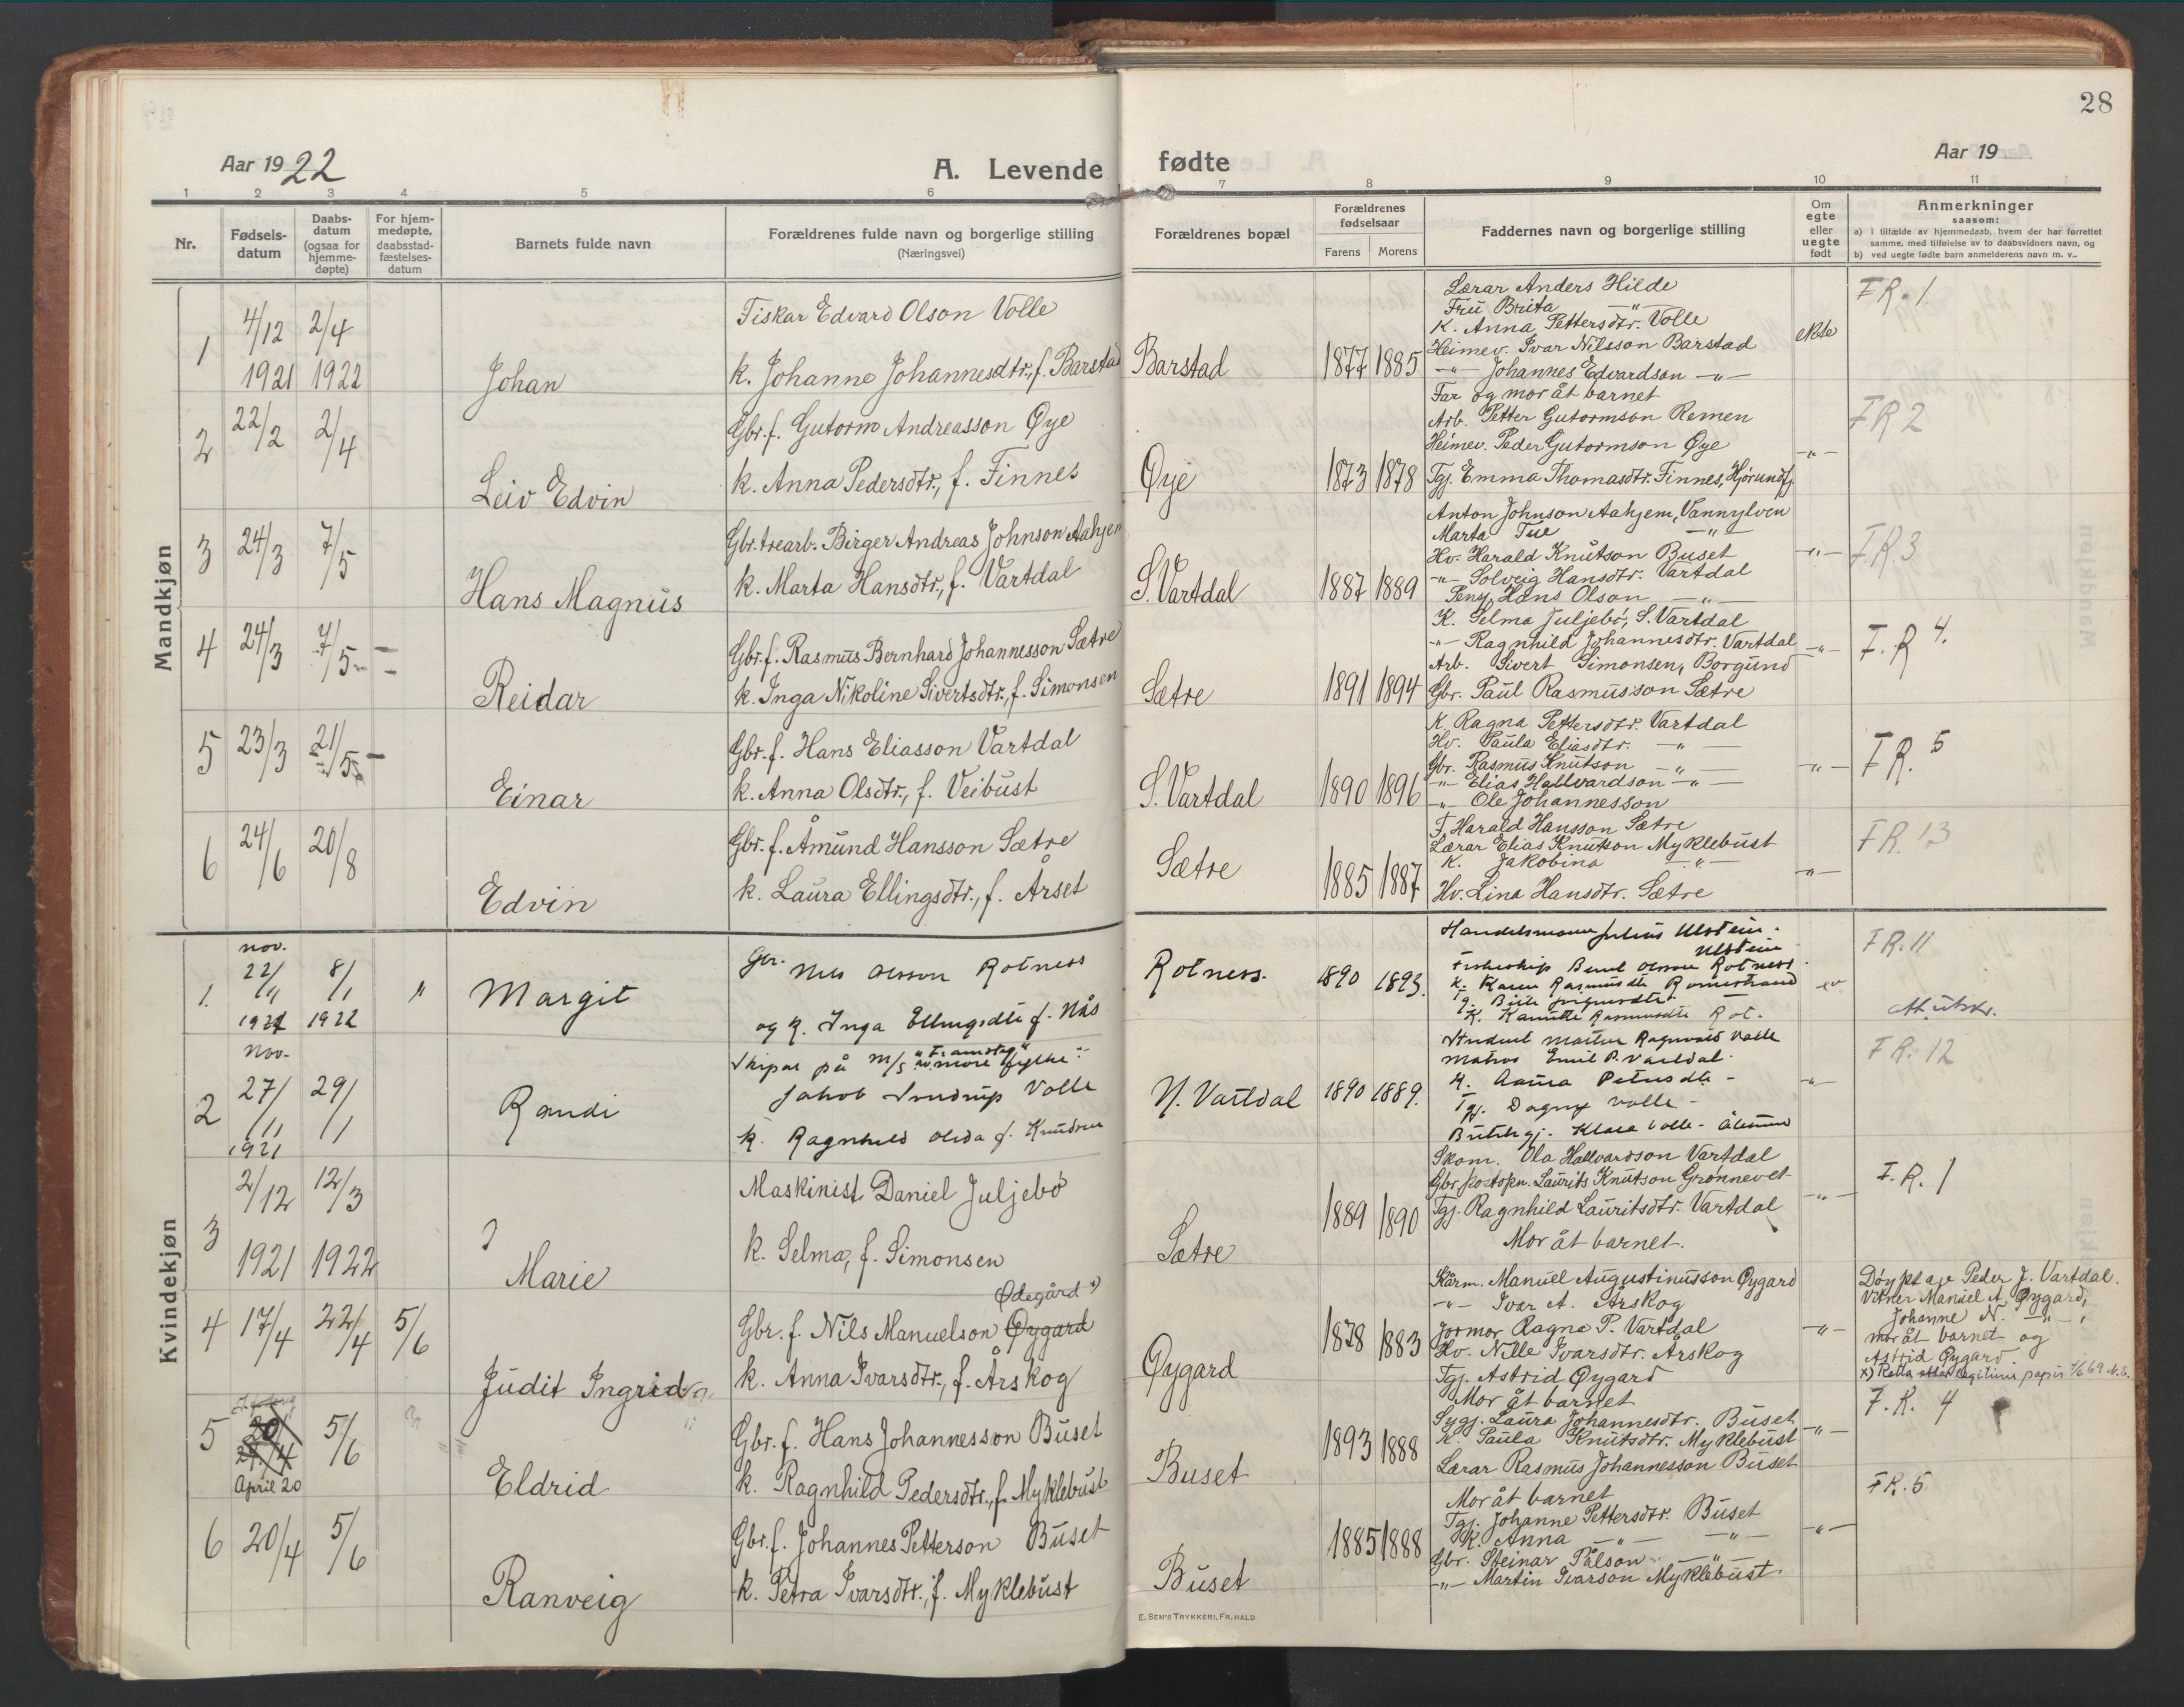 28
Aar 1922
A. Levende fødte
Aar 19
1 2 3 4 5 6 7 8 9 10 11
Nr.
Fødsels-datum
Daabs-datum (ogsaa for hjemme-døpte)
For hjem-medøpte, daabsstad-fæstelses-datum
Barnets fulde navn
Forældrenes fulde navn og borgerlige stilling
(Næringsvei)
Forældrenes bopæl
Forældrenes fødselsaar
Farens Morens
Faddernes navn og borgerlige stilling
Om egte eller uegte født
Anmerkninger
saasom:
a) i tilfælde av hjemmedaab, hvem der har forrettet samme, med tilføielse av to daabsvidners navn, og
b) ved uegte fødte barn anmelderens navn m. v..
Mandkjøn
1
4/12 1921
2/4 1922
Johan
Fiskar Edvard Olson Volle
k. Johanne Johannesdtr., f. Barstad
Barstad
1877 1885
Lærar Anders Hilde
Fru Brita -"-
K. Anna Pettersdtr. Volle
Heimev. Ivar Nilsson Barstad
-"- Johannes Edvardson -"-
Far og mor åt barnet
ekte
FR. 1
2
22/2
2/4
Leiv Edvin
Gbr. f. Gutorm Andreasson Øye
k. Anna Pedersdtr., f. Finnes
Øye
1873 1878
Arb. Petter Gutormson Remen
Heimev. Peder Gutormson Øye
Tgj. Emma Thomasdtr. Finnes, Hjørundfj.
-"-
FR 2
3
24/3
7/5
Hans Magnus
Gbr. trearb. Birger Andreas Johnson Aahjem
k. Marta Hansdtr., f. Vartdal
S. Vartdal
1887 1889
Anton Johnson Aahjem, Vannylven
Marta Tue -"-
Hv. Harald Knutson Buset
-"- Solveig Hansdtr. Vartdal
Hans Olson -"-
-"-
FR. 3
4
24/3
7/5
Reidar
Gbr. f. Rasmus Bernhard Johannesson Sætre
k. Inga Nikoline Sivertsdtr., f. Simonsen
Sætre
1891 1894
K. Selma Juljebø, S. Vartdal
-"- Ragnhild Johannesdtr. Vartdal
Arb. Sivert Simonsen, Borgund
Gbr. Paul Rasmusson Sætre
-"-
F. R 4.
5
23/3
21/5
Einar
Gbr. f. Hans Eliasson Vartdal
k. Anna Olsdtr., f. Veibust
S. Vartdal
1890 1896
K. Ragna Pettersdtr. Vartdal
Hv. Paula Eliasdtr. -"-
Gbr. Rasmus Knutson -"-
-"- Elias Hallvardson -"-
-"- Ole Johannesson
-"-
FR. 5
6
24/6
20/8
Edvin
Gbr. f. Åmund Hansson Sætre
k. Laura Ellingsdtr., f. Årset
Sætre
1885 1887
F. Harald Hansson Sætre
Lærar Elias Knutson Myklebust
K. Jakobina -"-
Hv. Lina Hansdtr. Sætre
-"-
FR. 13
Kvindekjøn
1.
nov. 22/11 1921
8/1 1922
"
Margit
Gbr. Nils Olsson Rotness
og k. Inga Ellingsdtr f. Nås
Rotness.
1890 1893.
Handelsmann Julius Ulstein.
Ulstein
Olsson Rotness.
K. Karen Rasmusdtr
K. Kamilla Rasmusdtr Rot.
FR. 11
Att. utskr.
2
nov. 27/11 1921
29/1
Randi
Skipar på M/S "Framsteg" av Møre fylke
Jakob Volle
k. Ragnhild Olida f. Knudsen
N. Vartdal
1890 1889.
Student Martin Ragnvald Volle
Matros Emil P. Vartdal.
K. Anna Petersdtr -
Tgj. Dagny Volle -
Klara Volle - Ålesund
-"-
FR. 12
3
2/12 1921
12/3 1922
Marie
Maskinist Daniel Juljebø
k. Selma, f. Simonsen
Sætre
1889 1890
Skom. Ola Hallvardson Vartdal
Gbr. postopn. Laurits Knutson Grønnevet
Tgj. Ragnhild Lauritsdtr. Vartdal
Mor åt barnet.
-"-
F. R. 1
4
17/4
22/4
5/6
Judit Ingrid
Ødegård x)
Gbr. f. Nils Manuelson Øygard
k. Anna Ivarsdtr., f. Årskog
Øygard
1878 1883
Kårm. Manuel Augustinusson Øygard
-"- Ivar A. Årskog
Jormor Ragna P. Vartdal
Hv. Nille Ivarsdtr. Årskog
Tgj. Astrid Øygard
Mor åt barnet
-"-
Døypt av Peder J. Vartdal.
Vitner Manuel A. Øygard,
Johanne N. -"-,
mor åt barnet og
Astrid Øygard.
x) Retta etter legitim. papir
5
April 20
5/6
Eldrid
Gbr. f. Hans Johannesson Buset
k. Ragnhild Pedersdtr., f. Myklebust
Buset
1893 1888
Sygj. Laura Johannesdtr. Buset
K. Paula Knutsdtr. Myklebust
Lærar Rasmus Johannesson Buset
Mor åt barnet
-"-
F. R. 4
6
20/4
5/6
Ranveig
Gbr. f. Johannes Petterson Buset
k. Petra Ivarsdtr., f. Myklebust
Buset
1885 1888
Tgj. Johanne Pettersdtr. Buset
K. Anna -"- -"-
Gbr. Steinar Pålson -"-
-"- Martin Ivarson Myklebust.
-"-
FR. 5
E. SEM'S TRYKKERI, FR. HALD